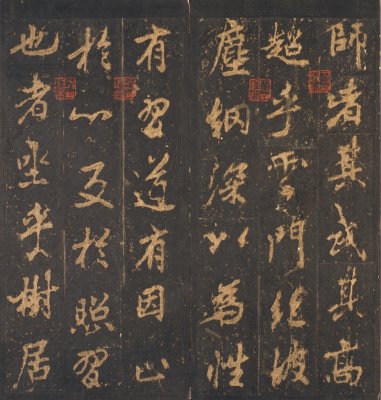 師者其其高
超乎雲門絕彼
塵網深以為性
有習道有因止
於心反於照習
也者坐乎樹居